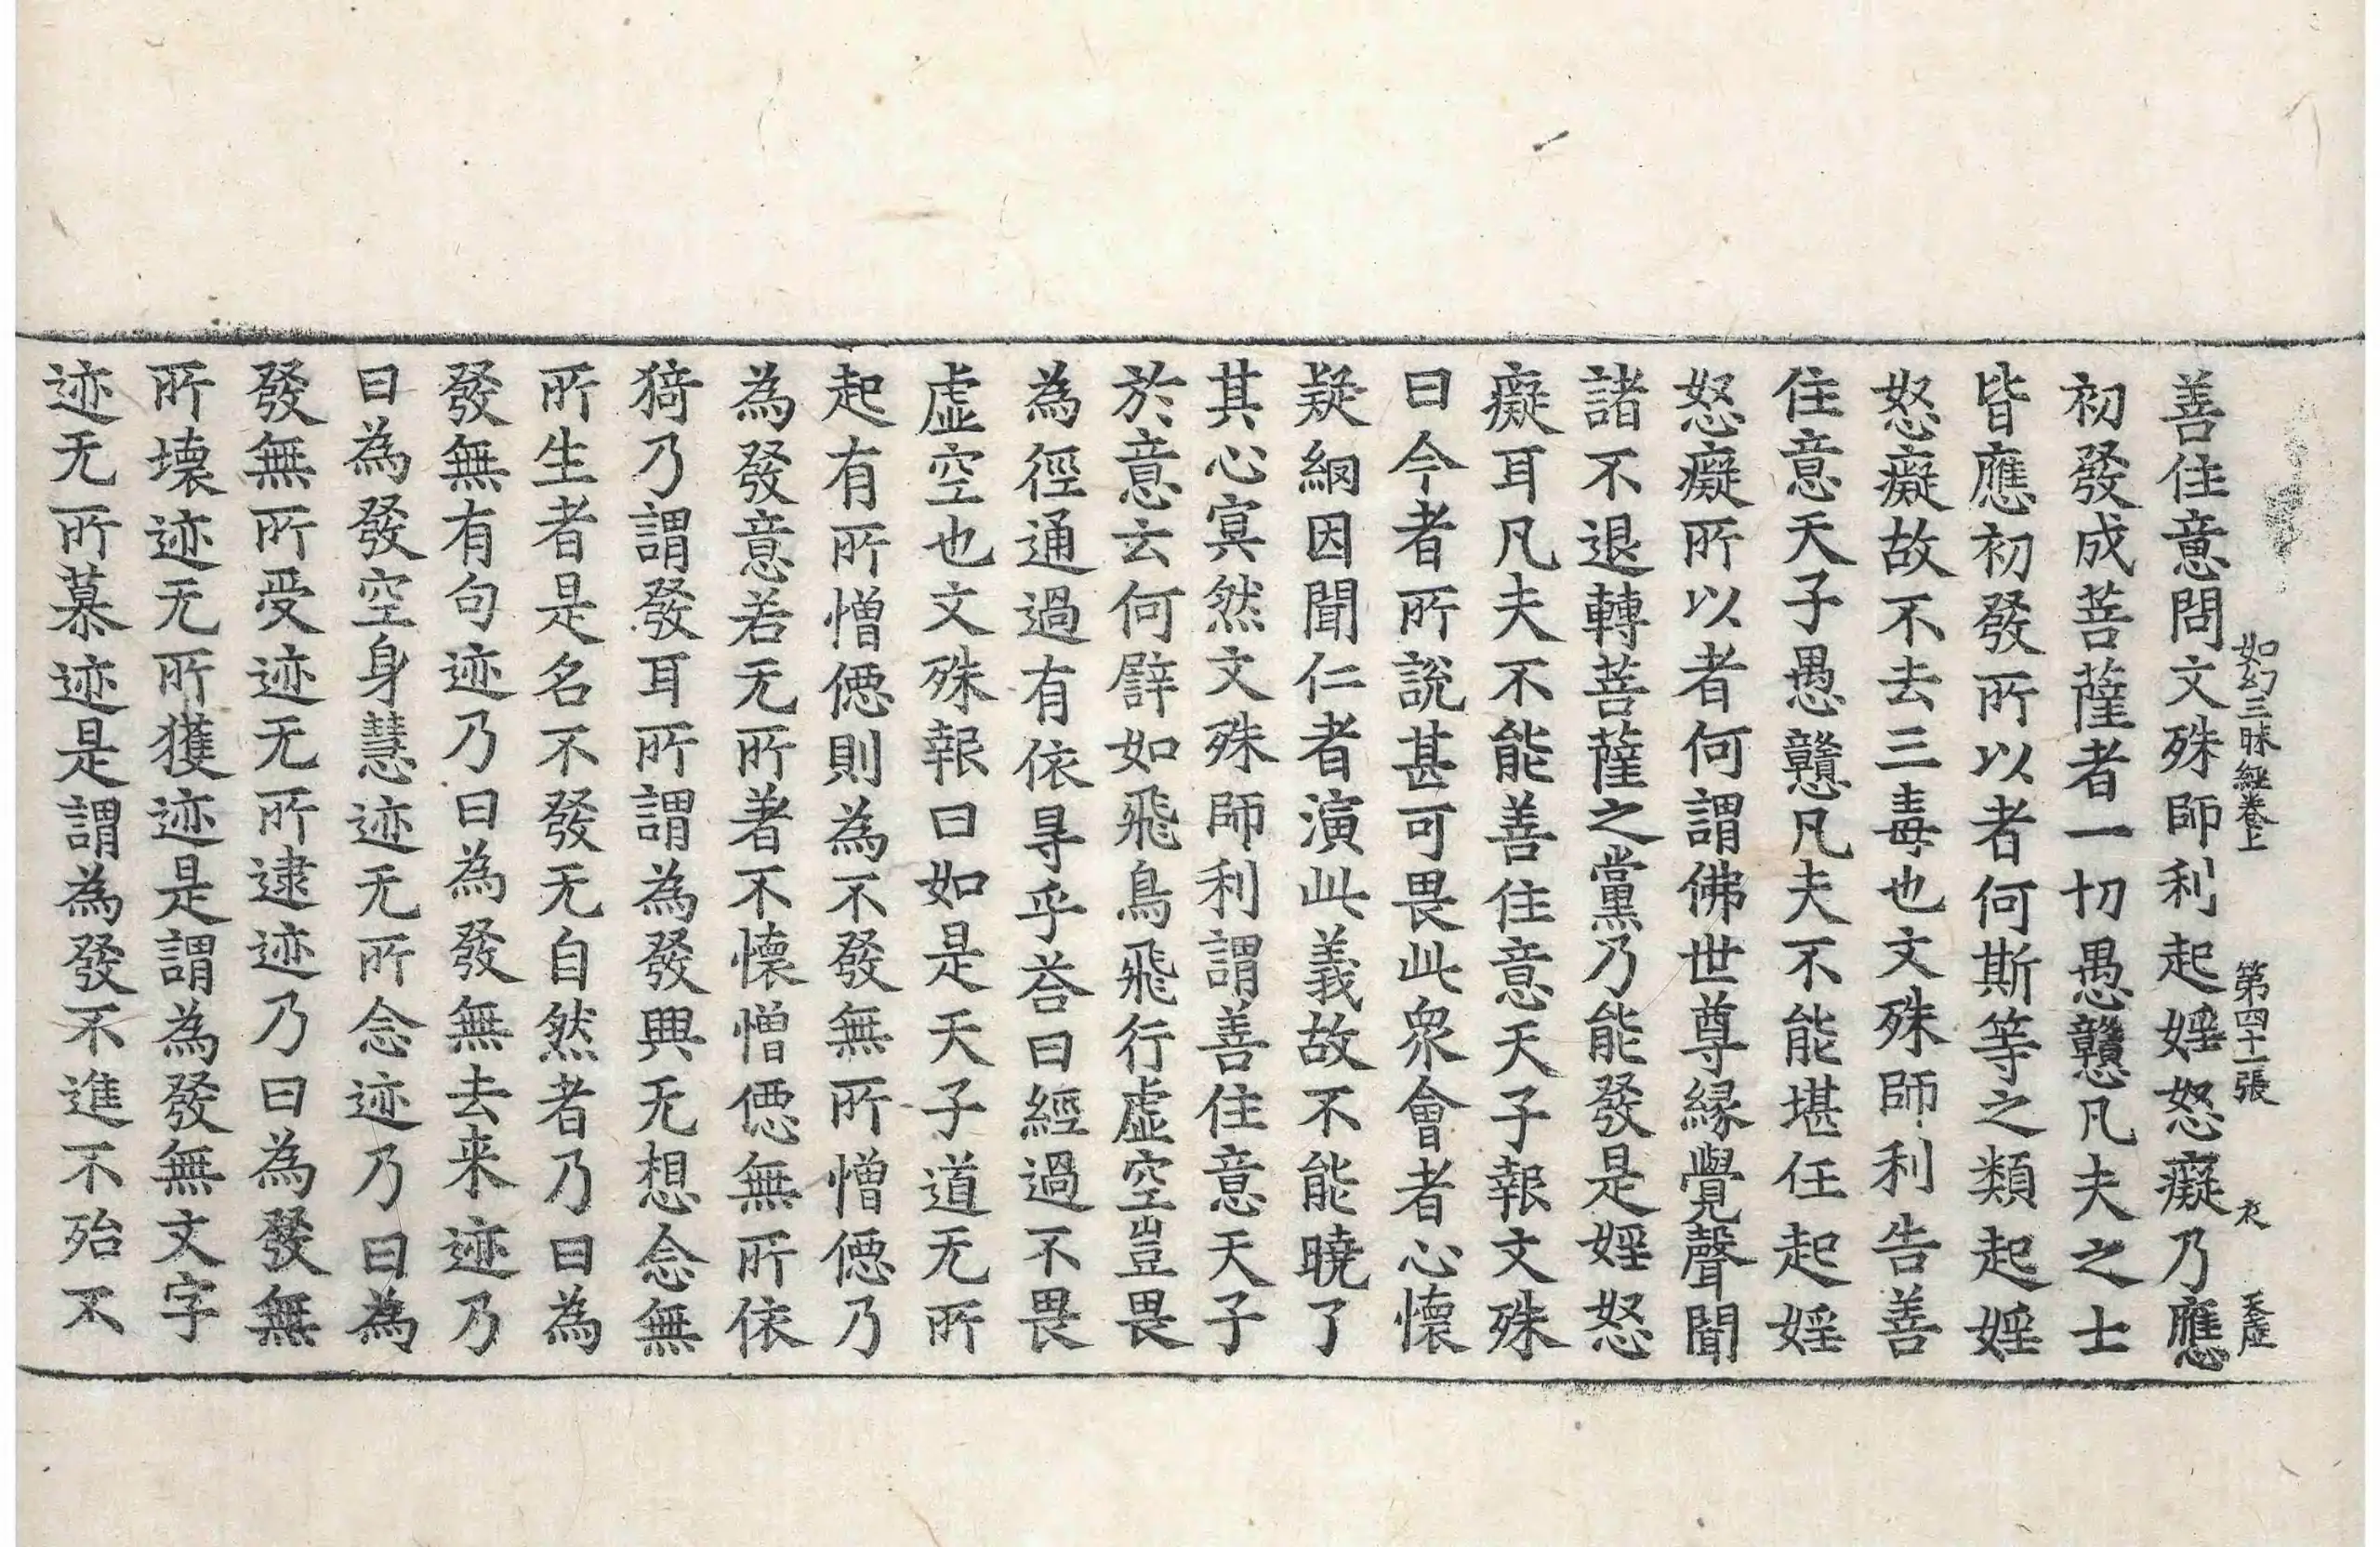 如幻三昧經卷上 第四十一張 衣 天虛
善住意問文殊師利起婬怒癡乃應
初發成菩薩者一切愚戇凡夫之士
皆應初發所以者何斯等之類起婬
怒癡故不去三毒也文殊師利告善
住意天子愚戇凡夫不能堪任起婬
怒癡所以者何謂佛世尊緣覺聲聞
諸不退轉菩薩之黨乃能發是婬怒
癡耳凡夫不能善住意天子報文殊
曰今者所說甚可畏此衆會者心懷
疑網因聞仁者演此義故不能曉了
其心冥然文殊師利謂善住意天子
於意云何譬如飛鳥飛行虛空豈畏
為徑通過有依㝵乎荅曰經過不畏
虛空也文殊報曰如是天子道无所
起有所憎㥯則為不發無所憎㥯乃
為發意若无所著不懷憎㥯無所依
猗乃謂發耳所謂為發興无想念無
所生者是名不發无自然者乃曰為
發無有句迹乃曰為發無去来迹乃
曰為發空身慧迹无所念迹乃曰為
發無所受迹无所逮迹乃曰為發無
所壞迹无所獲迹是謂為發無文字
迹无所慕迹是謂為發不進不殆不